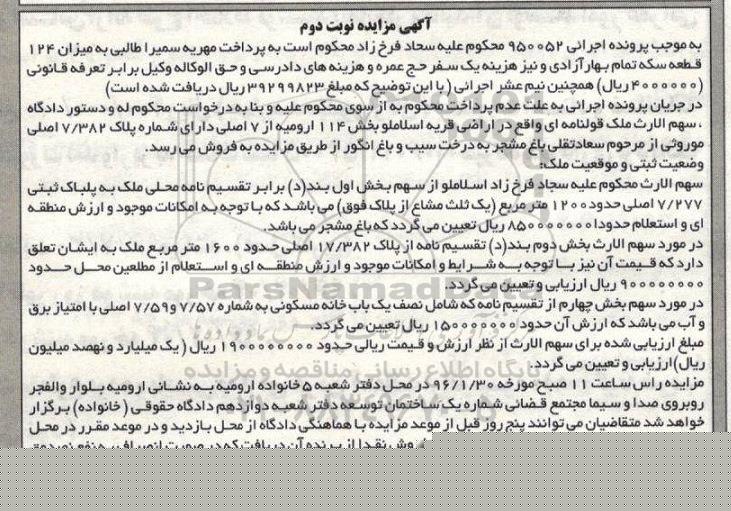 آگهی مزایده نوبت دوم
به موجب پرونده اجرائی ۹۵۰۰۵۲ محکوم علیه سجاد فرخ زاد محکوم است به پرداخت مهریه سمیرا طالبی به میزان ۱۲۴
قطعه سکه تمام بهار آزادی و نیز هزینه یک سفر حج عمره و هزینه های دادرسی و حق الوکاله وکیل برابر تعرفه قانونی
(۴۰۰۰۰۰۰ ریال) همچنین نیم عشر اجرائی (با این توضیح که مبلغ ۳۹۲۹۹۸۲۳ ریال دریافت شده است)
در جریان پرونده اجرائی به علت عدم پرداخت محکوم به از سوی محکوم علیه و بنا به درخواست محکوم له و دستور دادگاه
، سهم الارث ملک قولنامه ای واقع در اراضی قریه اسلاملو بخش ۱۱۴ ارومیه از ۷ اصلی دارای شماره پلاک ۷/۳۸۲ اصلی
موروثی از مرحوم سعادتقلی باغ مشجر به درخت سیب و باغ انگور از طریق مزایده به فروش می رسد.
وضعیت ثبتی و موقعیت ملک:
سهم الارث محکوم علیه سجاد فرخ زاد اسلاملو از سهم بخش اول بند(د) برابر تقسیم نامه محلی ملک به پلباک ثبتی
۷/۲۷۷ اصلی حدود ۱۲۰۰ متر مربع (یک ثلث مشاع از پلاک فوق) می باشد که با توجه به امکانات موجود و ارزش منطقه
ای و استعلام حدودا ۸۵۰۰۰۰۰۰۰ ریال تعیین می گردد که باغ مشجر می باشد.
در مورد سهم الارث بخش دوم بند(د) تقسیم نامه از پلاک ۱۷/۳۸۲ اصلی حدود ۱۶۰۰ متر مربع ملک به ایشان تعلق
دارد که قیمت آن نیز با توجه به شرایط و امکانات موجود و ارزش منطقه ای و استعلام از مطلعین محل حدود
۹۰۰۰۰۰۰۰۰ ریال ارزیابی و تعیین می گردد.
در مورد سهم بخش چهارم از تقسیم نامه که شامل نصف یک باب خانه مسکونی به شماره ۷/۵۷ و ۷/۵۹ اصلی با امتیاز برق
و آب می باشد که ارزش آن حدود ۱۵۰۰۰۰۰۰۰ ریال تعیین می گردد.
مبلغ ارزیابی شده برای سهم الارث از نظر ارزش و قیمت ریالی حدود ۱۹۰۰۰۰۰۰۰۰ ریال (یک میلیارد و نهصد میلیون
ریال) ارزیابی و تعیین می گردد.
مزایده راس ساعت ۱۱ صبح مورخه ۹۶/۱/۳۰ در محل دفتر شعبه ۵ خانواده ارومیه به نشانی ارومیه بلوار والفجر
روبروی صدا و سیما مجتمع قضائی شماره یک ساختمان توسعه دفتر شعبه دوازدهم دادگاه حقوقی (خانواده) برگزار
خواهد شد متقاضیان می توانند پنج روز قبل از موعد مزایده با هماهنگی دادگاه از محل بازدید و در موعد مقرر در محل
ParsNamad
پایگاه اطلاع رسانی مناقصه و مزایده